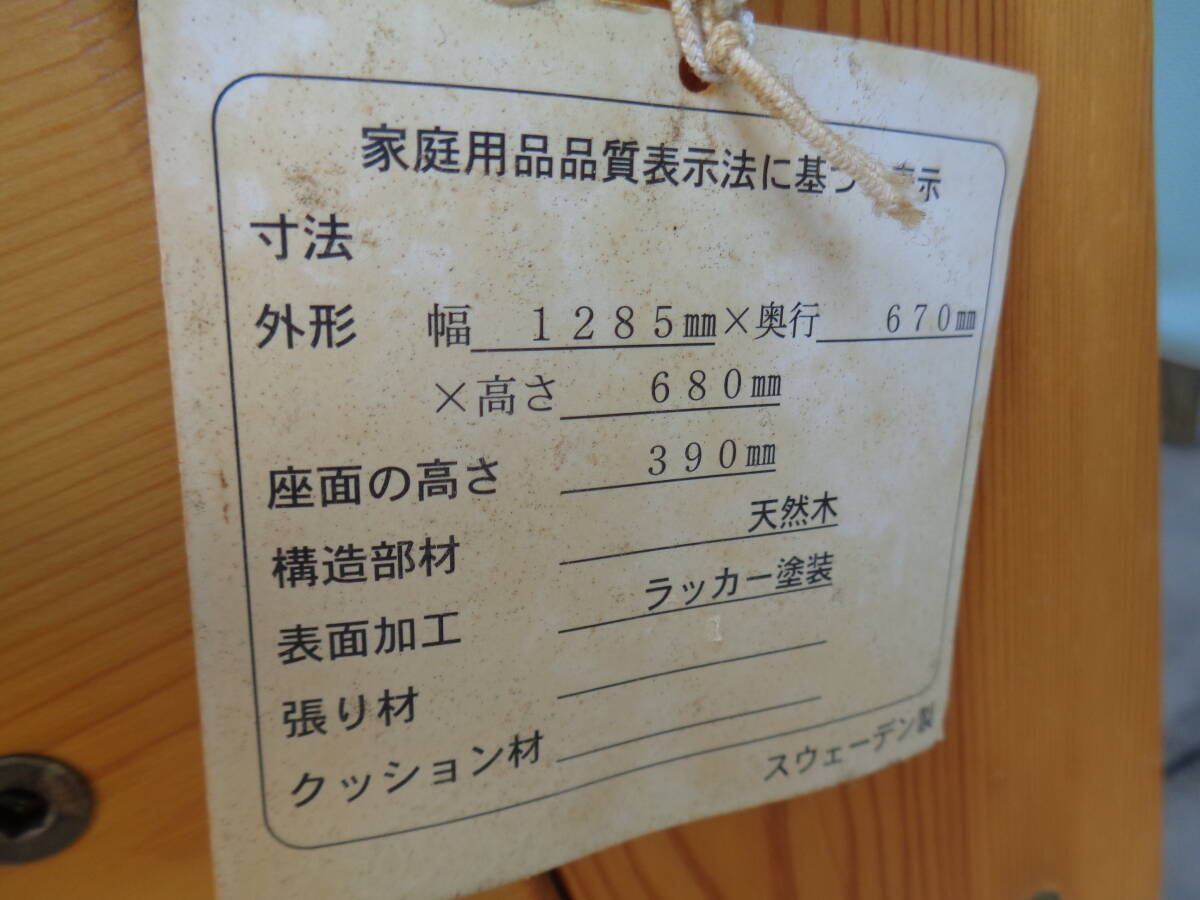 家庭用品品質表示法に基づ 表示
寸法
外形 幅 1285㎜×奥行 670㎜
×高さ 680㎜
座面の高さ 390㎜
構造部材 天然木
表面加工 ラッカー塗装
張り材
クッション材
スウェーデン製